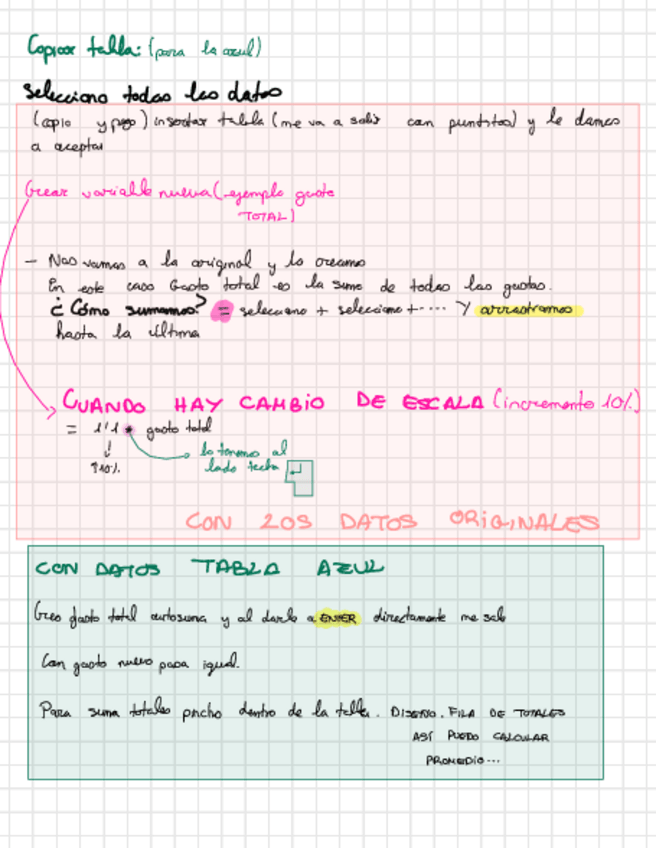 Copiar tabla: (para la azul)
Selecciono todos los datos
(copio y pego) insertar tabla (me va a salir con puntitos) y le damos
a aceptar
Crear variable nueva (ejemplo gasto
TOTAL)
- Nos vamos a la original y lo creamos
En este caso Gasto total es la suma de todos los gastos.
¿Cómo sumamos? = selecciono + selecciono + .... Y arrastramos
hasta la última
CUANDO HAY CAMBIO DE ESCALA (incremento 10%)
= 1'1 * gasto total
↓ lo tenemos al
↑10% lado tecla
CON LOS DATOS ORIGINALES
CON DATOS TABLA AZUL
Creo gasto total autosuma y al darle a ENTER directamente me sale
Con gasto nuevo pasa igual.
Para suma totales pincho dentro de la tabla. DISEÑO. FILA DE TOTALES
ASÍ PUEDO CALCULAR
PROMEDIO...